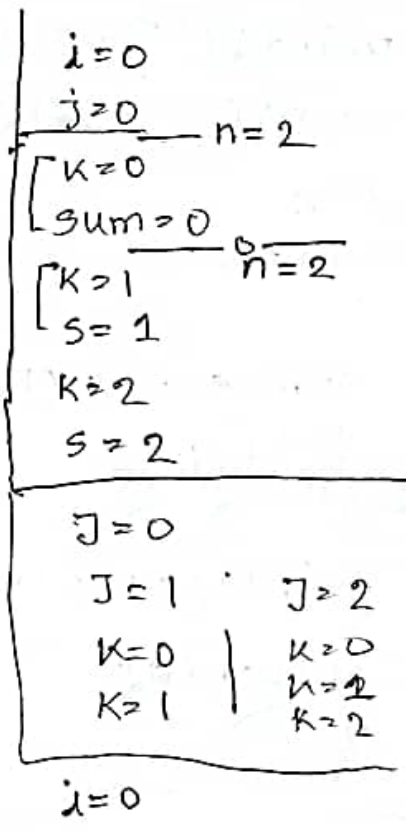 i=0
j=0
n=2
K=0
sum=0
n=2
K=1
S=1
K=2
S=2
J=0
J=1 J=2
K=0 K=0
K=1 K=1
K=2
i=0